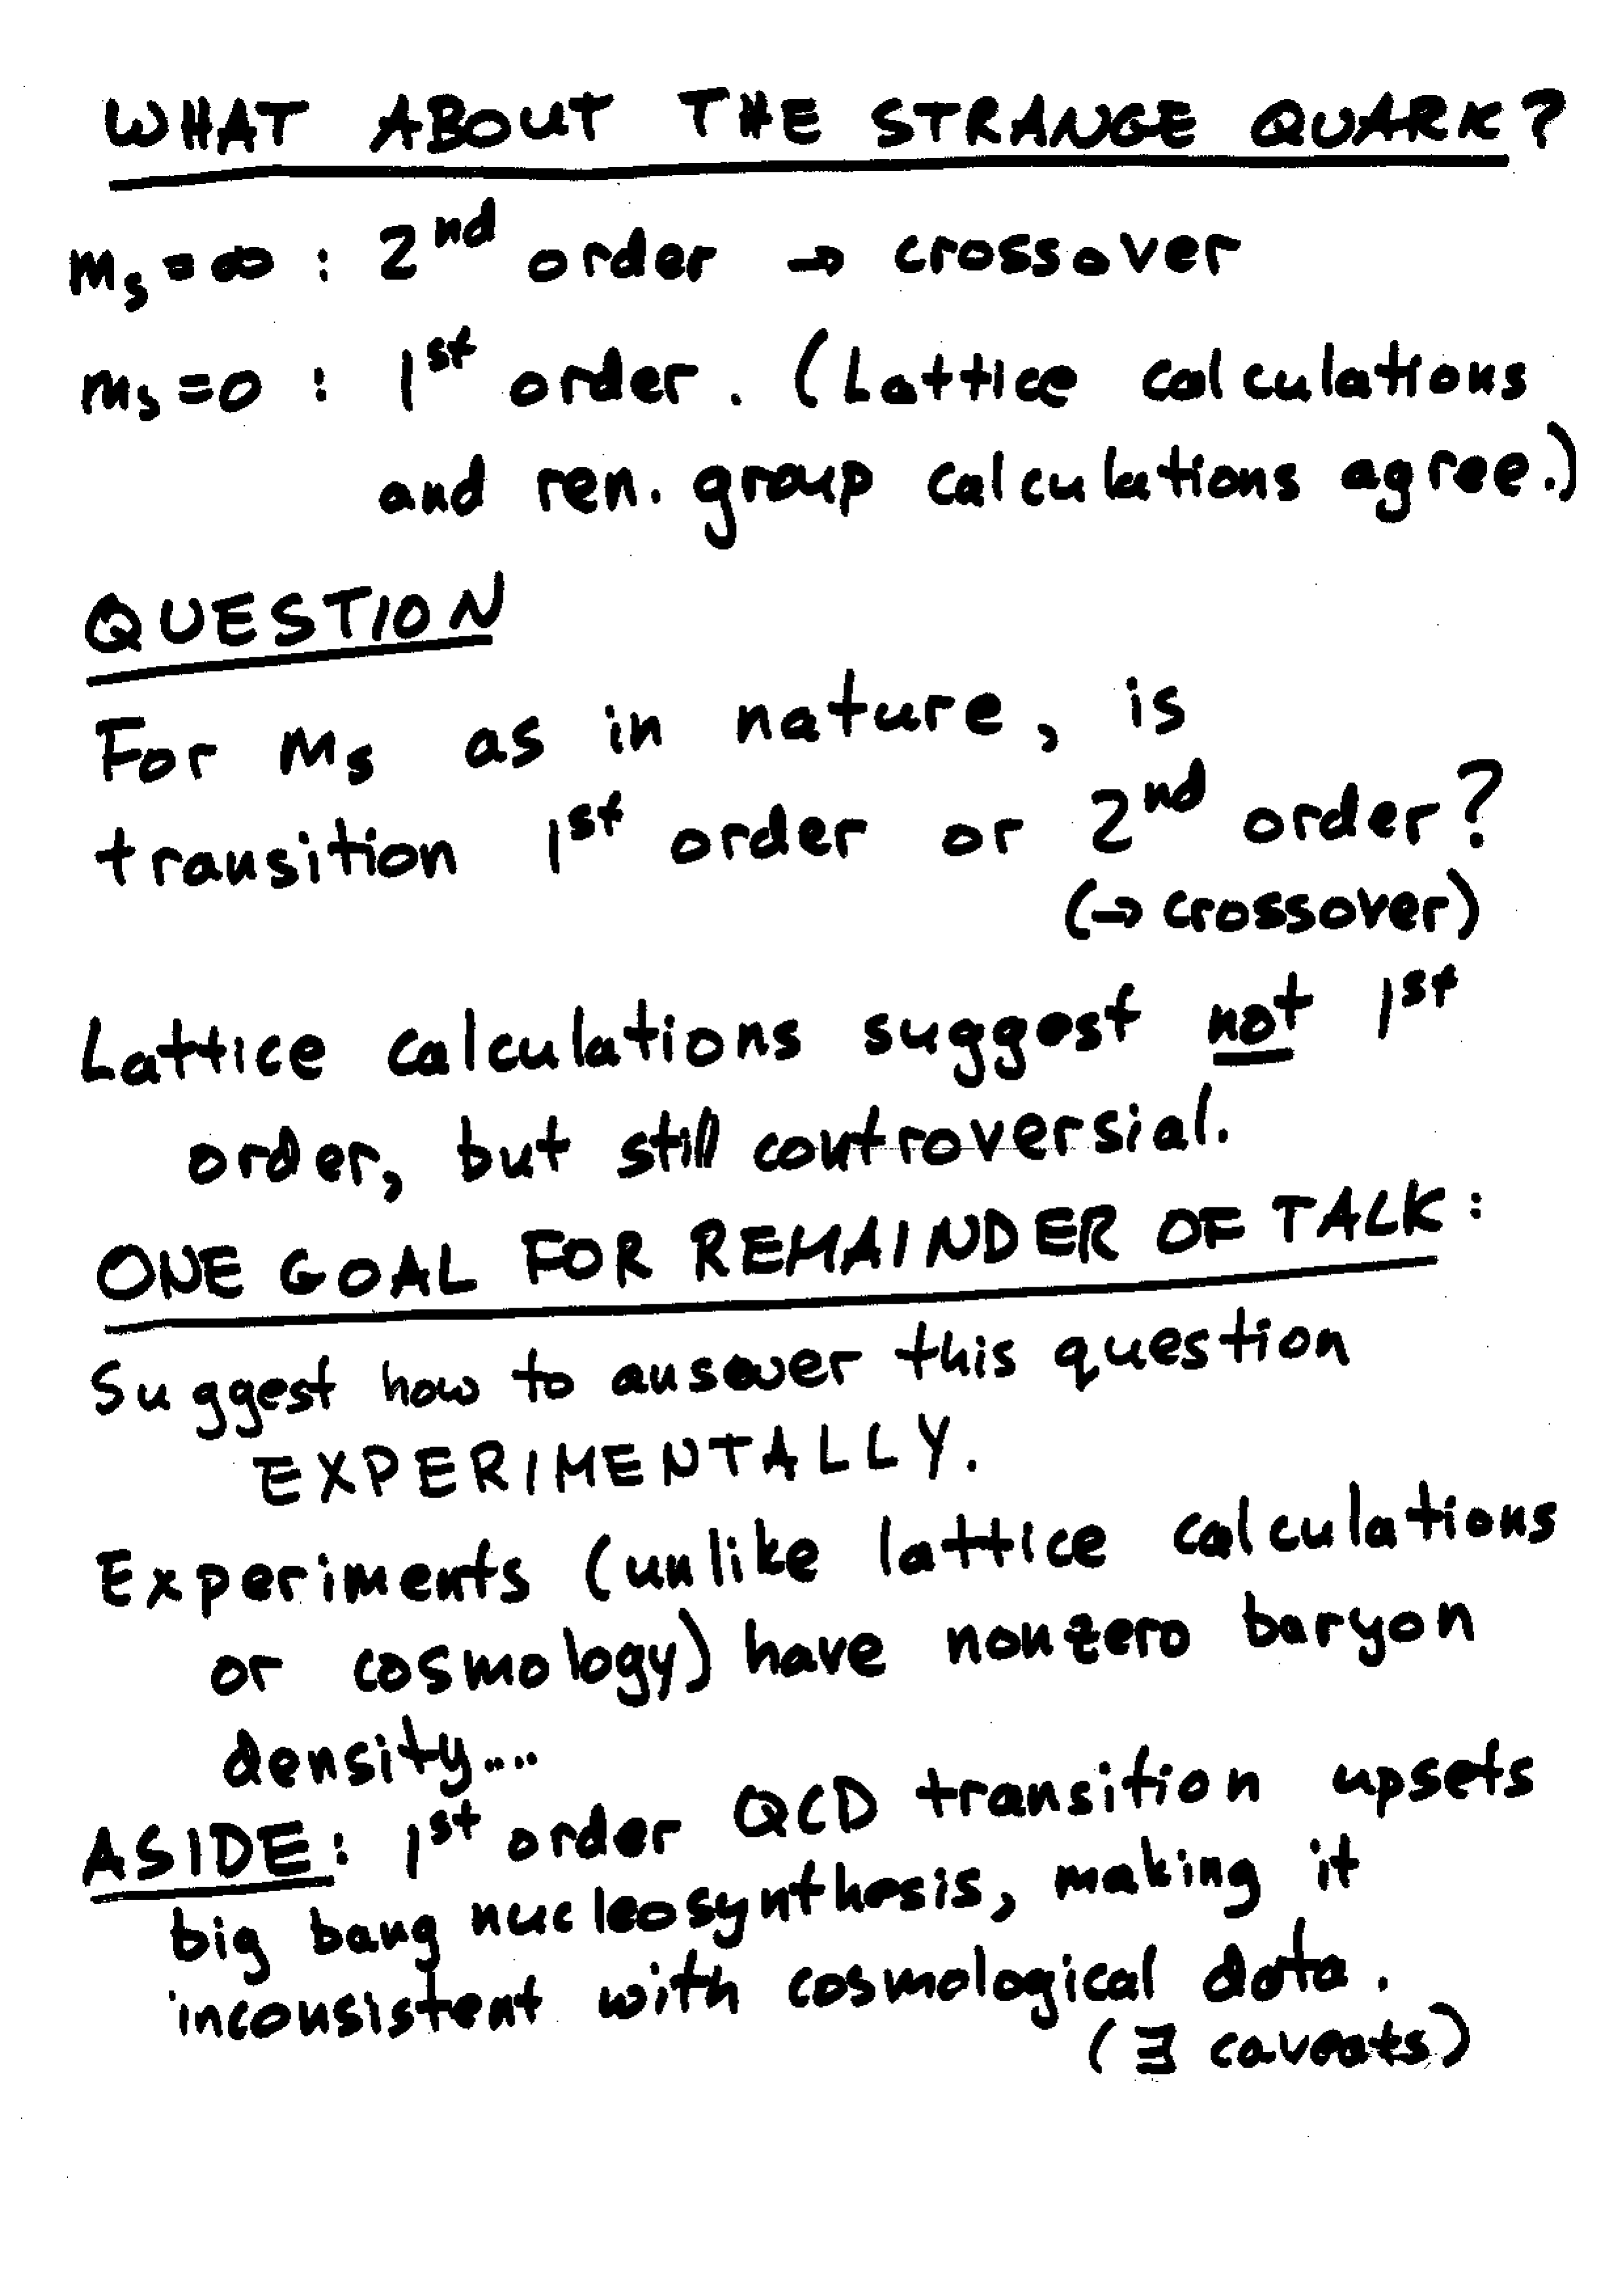 WHAT ABOUT THE STRANGE QUARK?
ms = ∞ : 2nd order → crossover
ms = 0 : 1st order. (Lattice calculations
and ren. group calculations agree.)
QUESTION
For ms as in nature, is
transition 1st order or 2nd order?
(→ crossover)
Lattice calculations suggest not 1st
order, but still controversial.
ONE GOAL FOR REMAINDER OF TALK:
Suggest how to answer this question
EXPERIMENTALLY.
Experiments (unlike lattice calculations
or cosmology) have nonzero baryon
density....
ASIDE: 1st order QCD transition upsets
big bang nucleosynthesis, making it
inconsistent with cosmological data.
(∃ caveats)